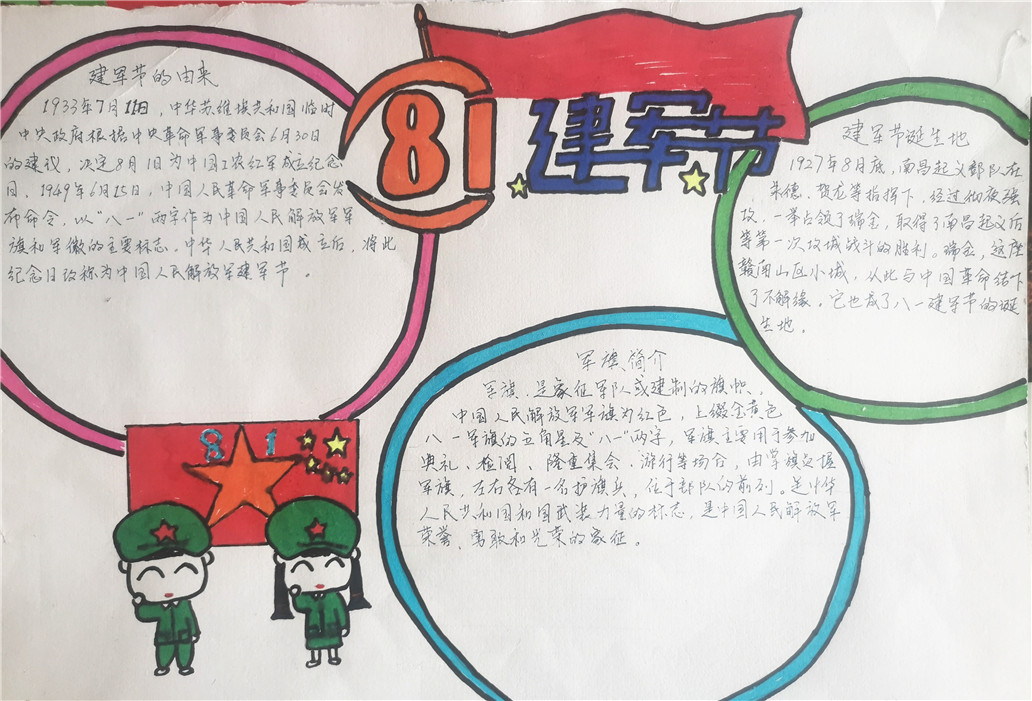 81
建军节
建军节的由来
1933年7月11日，中华苏维埃共和国临时
中央政府根据中央革命军事委员会6月30日
的建议，决定8月1日为中国工农红军成立纪念
日。1949年6月15日，中国人民革命军事委员会发
布命令，以"八一"两字作为中国人民解放军军
旗和军徽的主要标志。中华人民共和国成立后，将此
纪念日改称为中国人民解放军建军节。
建军节诞生地
1927年8月底，南昌起义部队在
朱德、贺龙等指挥下，经过彻夜强
攻，一举占领了瑞金，取得了南昌起义后
等第一次攻城战斗的胜利。瑞金，这座
赣南山区小城，从此与中国革命结下
了不解缘。它也成了八一建军节的诞
生地。
军旗简介
军旗，是象征军队或建制的旗帜，
中国人民解放军军旗为红色，上缀金黄色
八一军旗的五角星及"八一"两字，军旗主要用于参加
典礼、检阅、隆重集会、游行等场合，由掌旗员握
军旗，左右各有一名护旗兵，位于部队的前列。是中华
人民共和国和国武装力量的标志，是中国人民解放军
荣誉，勇敢和光荣的象征。
8 1